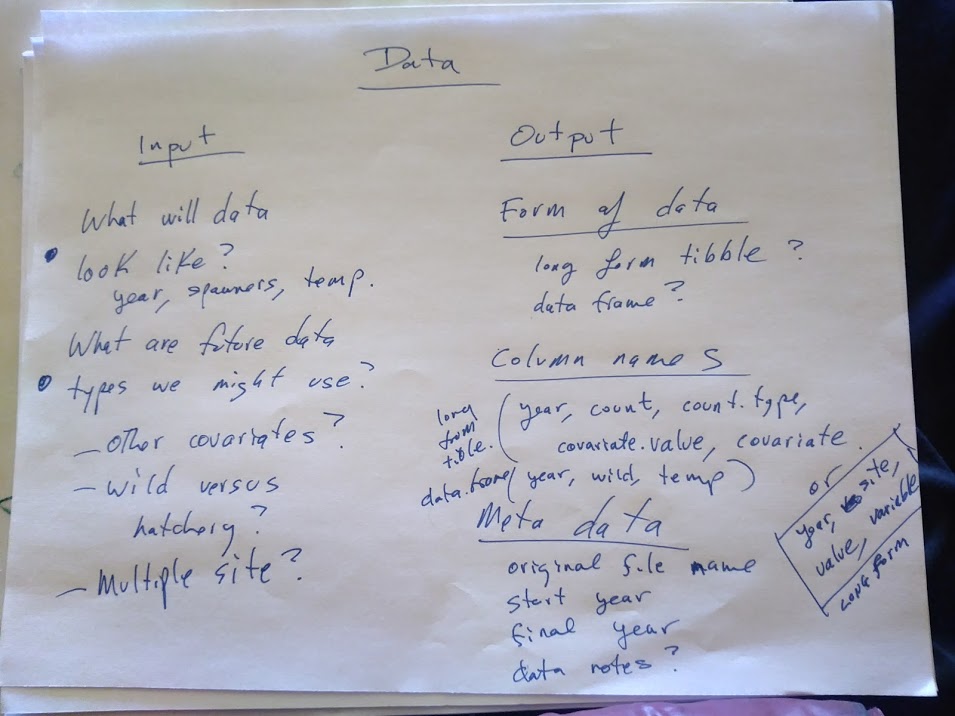 Data
Input
What will data
look like?
year, spawners, temp.
What are future data
types we might use?
- other covariates?
- wild versus
hatchery?
- Multiple site?
Output
Form of data
long form tibble?
data frame?
Column names
long
from
tible.
(year, count, count.type,
covariate.value, covariate.
data.frame (year, wild, temp)
or
year, site,
value, variable
LONG FORM
Meta data
original file name
start year
final year
data notes?